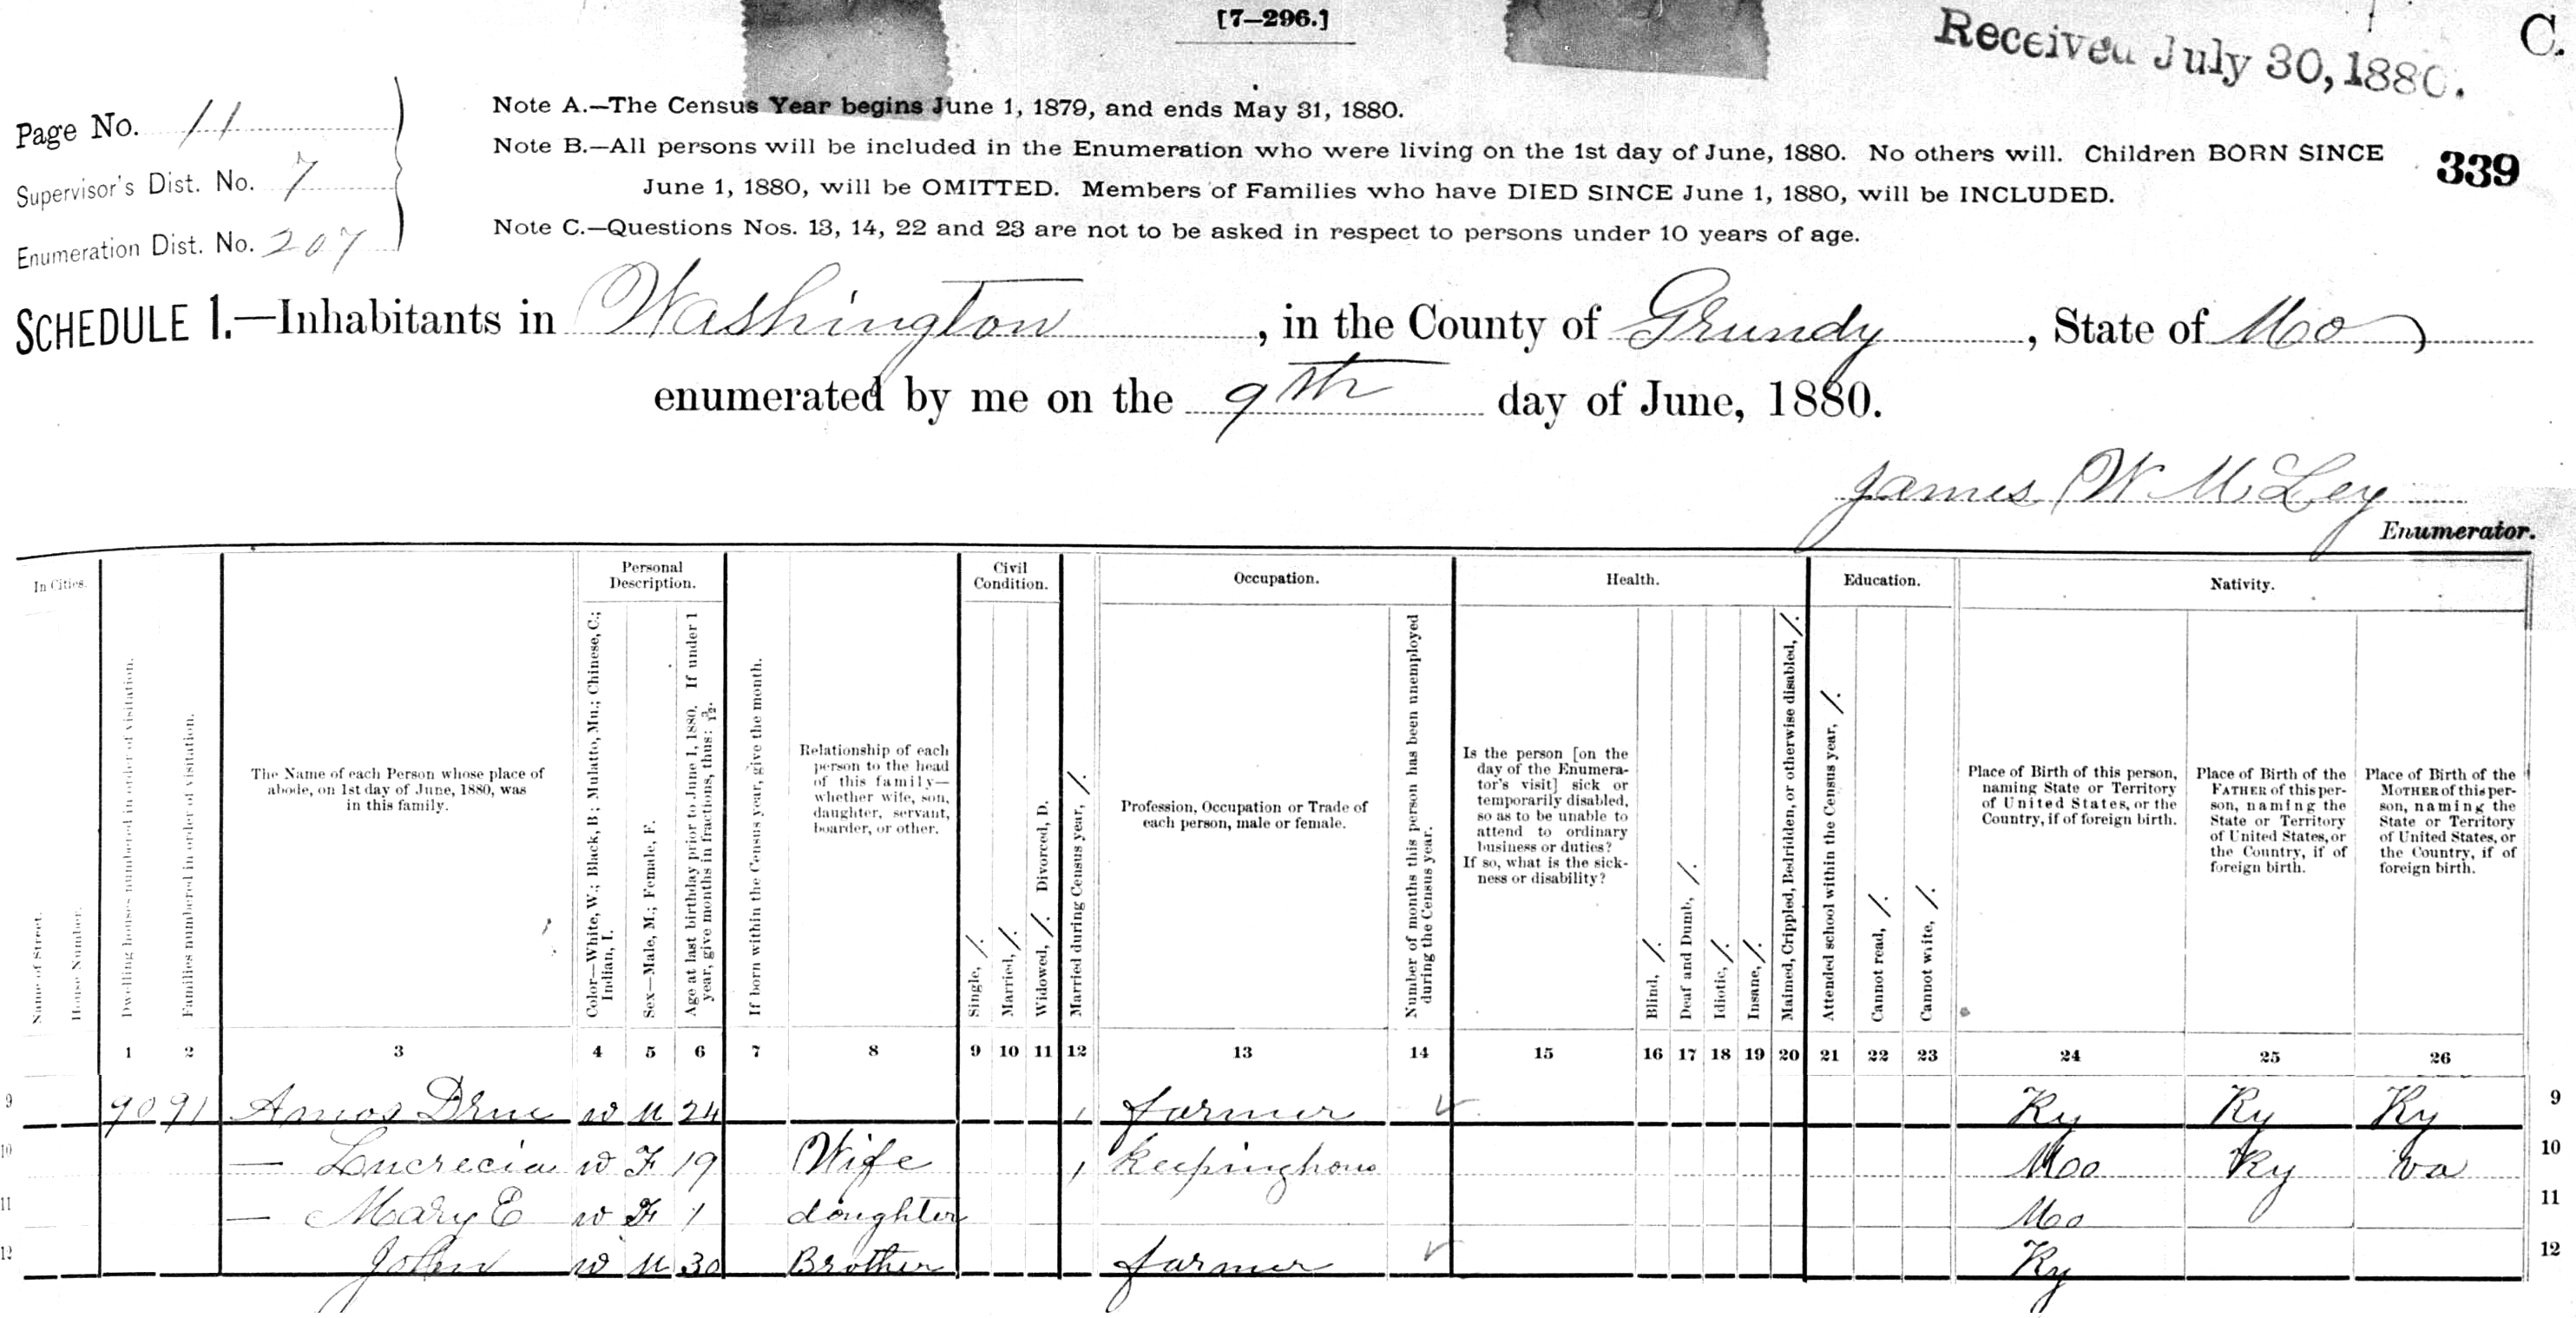 [7—296.]
Received July 30, 1880.
C.
Page No. 11
Supervisor's Dist. No. 7
Enumeration Dist. No. 207
Note A.—The Census Year begins June 1, 1879, and ends May 31, 1880.
Note B.—All persons will be included in the Enumeration who were living on the 1st day of June, 1880. No others will. Children BORN SINCE
June 1, 1880, will be OMITTED. Members of Families who have DIED SINCE June 1, 1880, will be INCLUDED.
Note C.—Questions Nos. 13, 14, 22 and 23 are not to be asked in respect to persons under 10 years of age.
339
SCHEDULE 1.—Inhabitants in Washington, in the County of Grundy, State of Mo
enumerated by me on the 9th day of June, 1880.
James W McLey
Enumerator.
In Cities.
Name of Street.
House Number.
Dwelling houses numbered in order of visitation.
Families numbered in order of visitation.
The Name of each Person whose place of
abode, on 1st day of June, 1880, was
in this family.
Personal
Description.
Color—White, W.; Black, B.; Mulatto, Mu.; Chinese, C.;
Indian, I.
Sex—Male, M.; Female, F.
Age at last birthday prior to June 1, 1880. If under 1
year, give months in fractions, thus: 3/12.
If born within the Census year, give the month.
Relationship of each
person to the head
of this family—
whether wife, son,
daughter, servant,
boarder, or other.
Civil
Condition.
Single, /.
Married, /.
Widowed, /. Divorced, D.
Married during Census year, /.
Occupation.
Profession, Occupation or Trade of
each person, male or female.
Number of months this person has been unemployed
during the Census year.
Health.
Is the person [on the
day of the Enumera-
tor's visit] sick or
temporarily disabled,
so as to be unable to
attend to ordinary
business or duties?
If so, what is the sick-
ness or disability?
Blind, /.
Deaf and Dumb, /.
Idiotic, /.
Insane, /.
Maimed, Crippled, Bedridden, or otherwise disabled, /.
Education.
Attended school within the Census year, /.
Cannot read, /.
Cannot write, /.
Nativity.
Place of Birth of this person,
naming State or Territory
of United States, or the
Country, if of foreign birth.
Place of Birth of the
FATHER of this per-
son, naming the
State or Territory
of United States, or
the Country, if of
foreign birth.
Place of Birth of the
MOTHER of this per-
son, naming the
State or Territory
of United States, or
the Country, if of
foreign birth.
1 2 3 4 5 6 7 8 9 10 11 12 13 14 15 16 17 18 19 20 21 22 23 24 25 26
9 90 91 Amos Drue W M 24 / farmer Ky Ky Ky 9
10 — Lucrecia W F 19 Wife / keepinghous Mo Ky va 10
11 — Mary E W F 1 doughter Mo 11
12 John W M 30 Brother farmer Ky 12